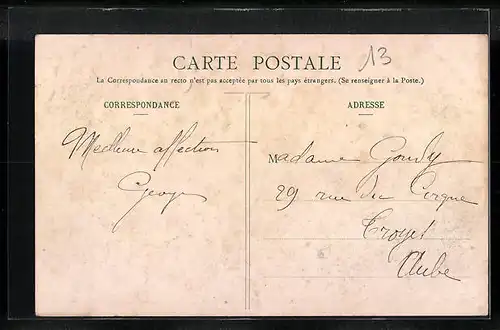 13
CARTE POSTALE
La Correspondance au recto n'est pas acceptée par tous les pays étrangers. (Se renseigner à la Poste.)
CORRESPONDANCE
Meilleure affection
Georges
ADRESSE
Madame Goudy
29 rue du Cirque
Troyes
Aube